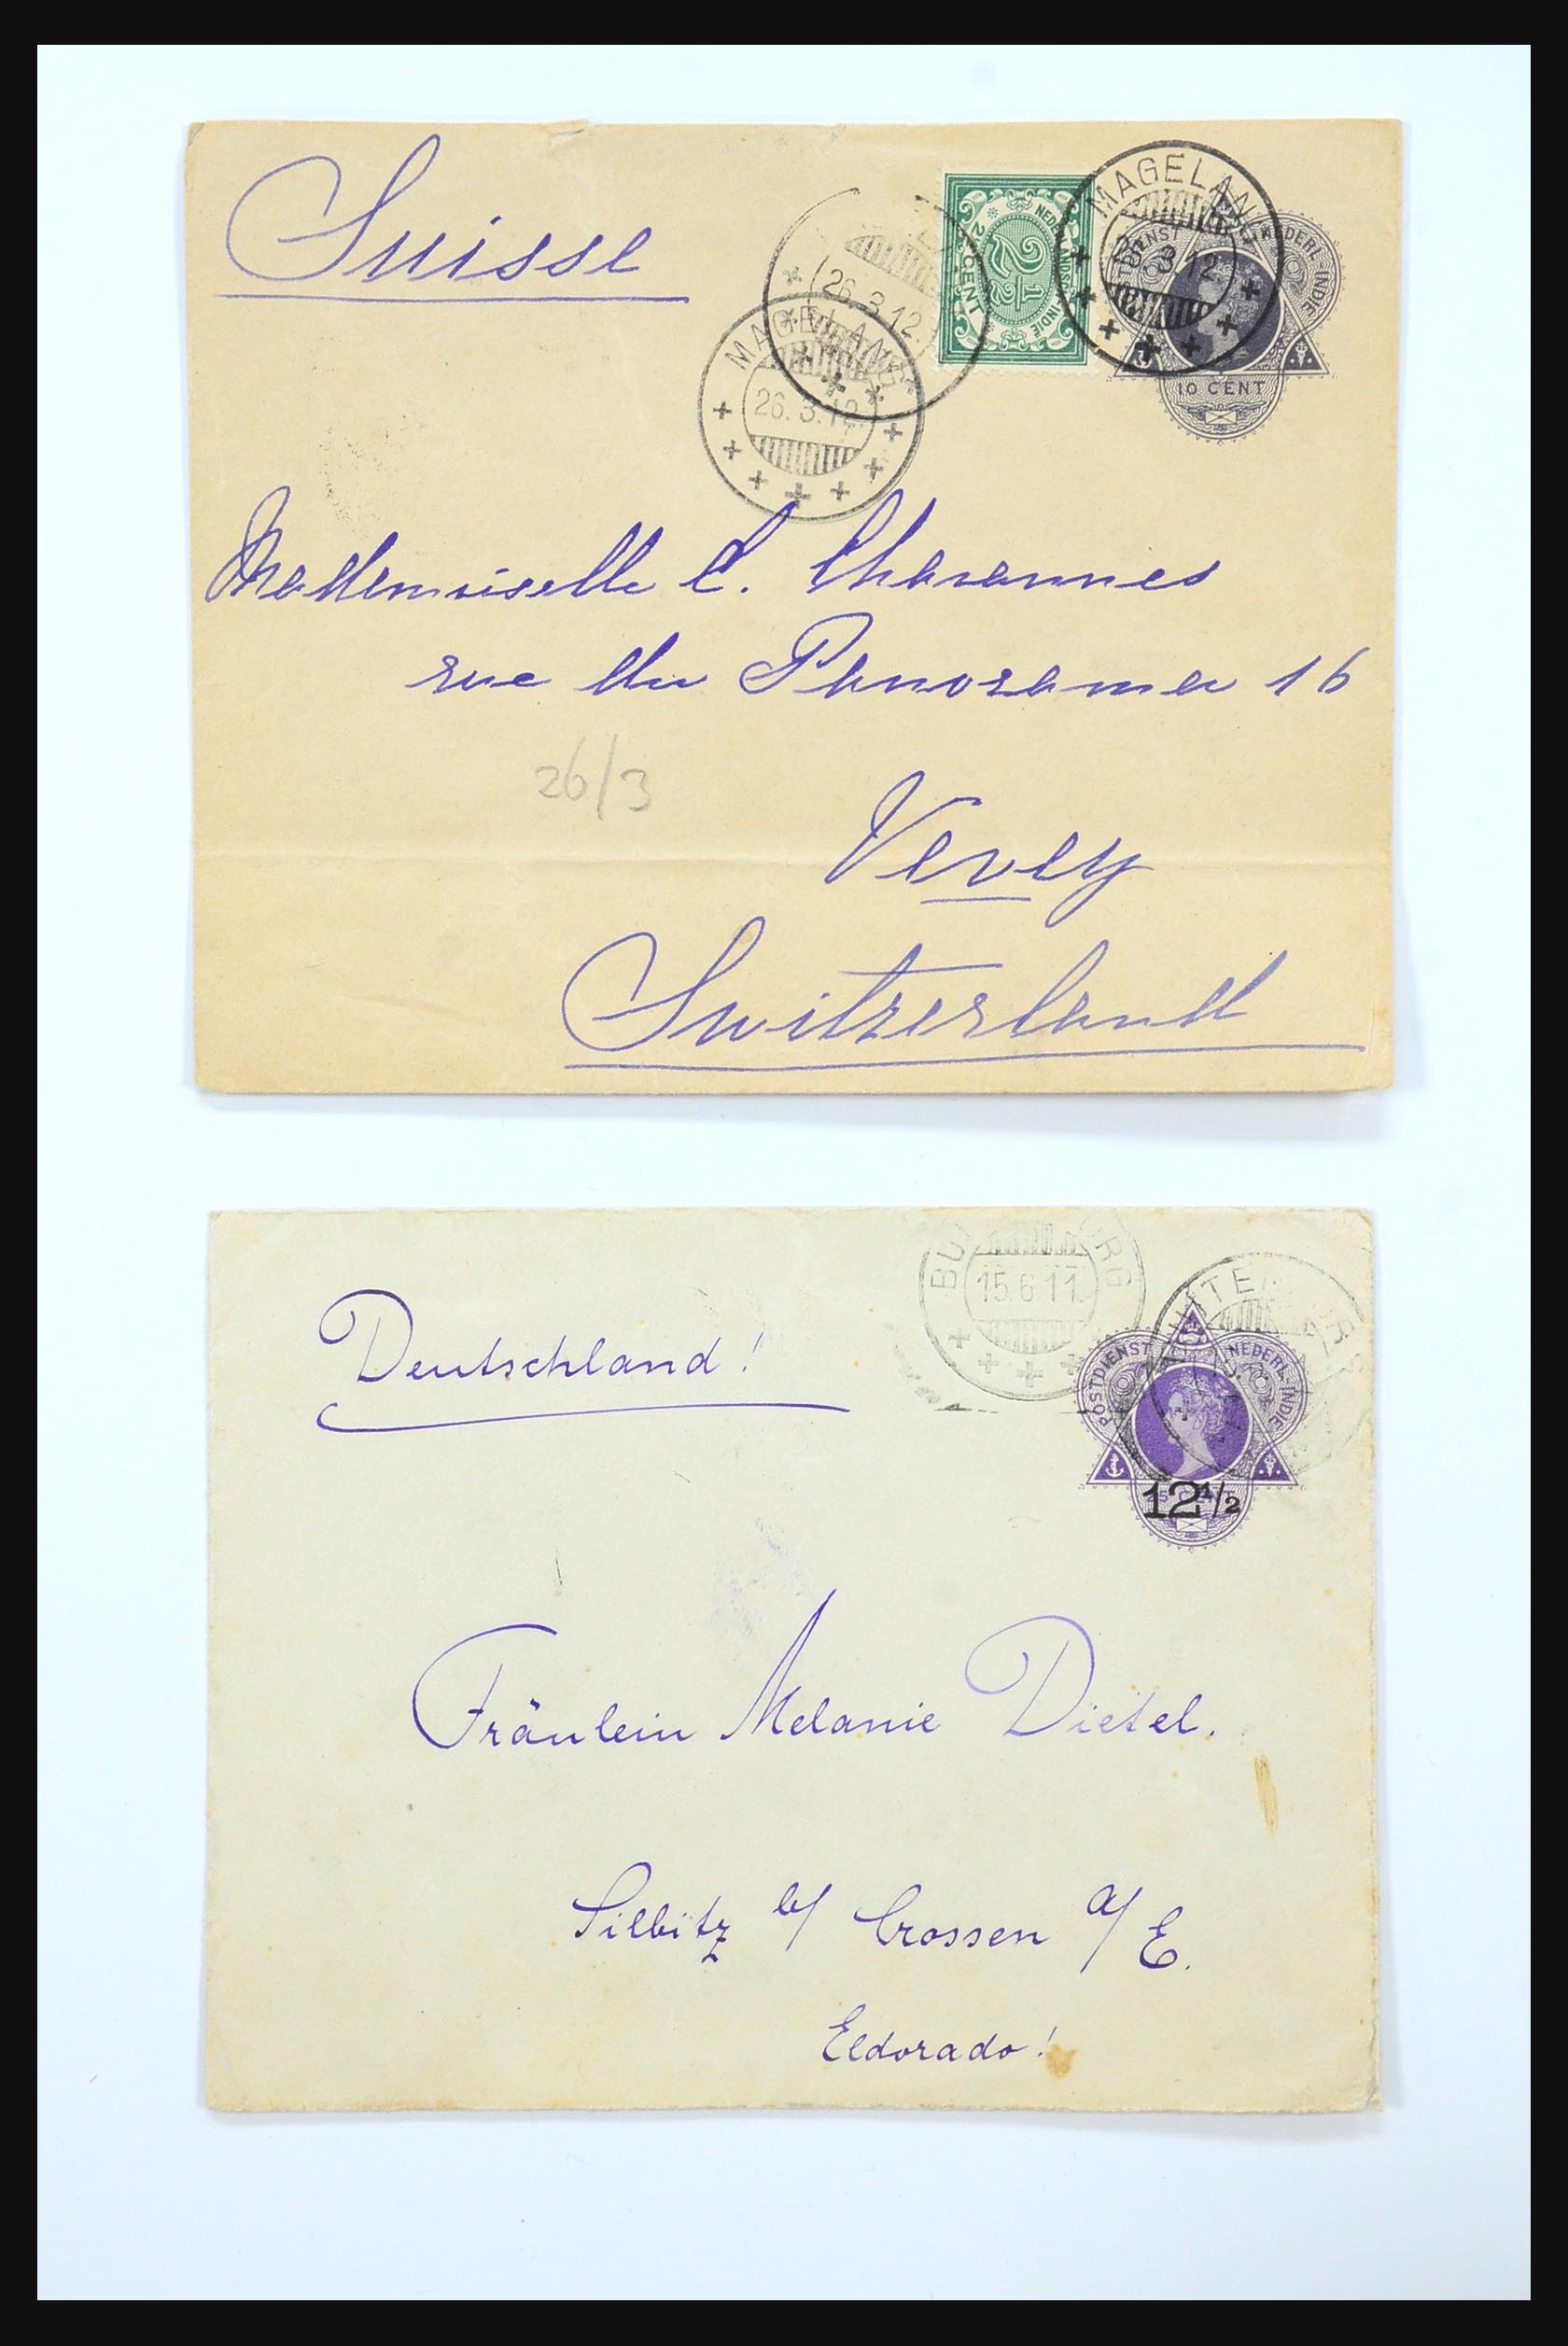 Suisse
MAGELANG
26.3.12
NEDERLANDSCH-INDIË
2 1/2
CENT
26.3.12
MAGELANG
26.3.12
POSTDIENST NEDERL-INDIE
10 CENT
Mademoiselle C. Chavannes
rue du Panorama 16
26/3
Vevey
Switzerland
Deutschland!
BUITENZORG
15.6.11
BUITENZORG
POSTDIENST NEDERL-INDIE
12 1/2
Fräulein Melanie Dietel.
Silbitz b/ Crossen a/E.
Eldorado!